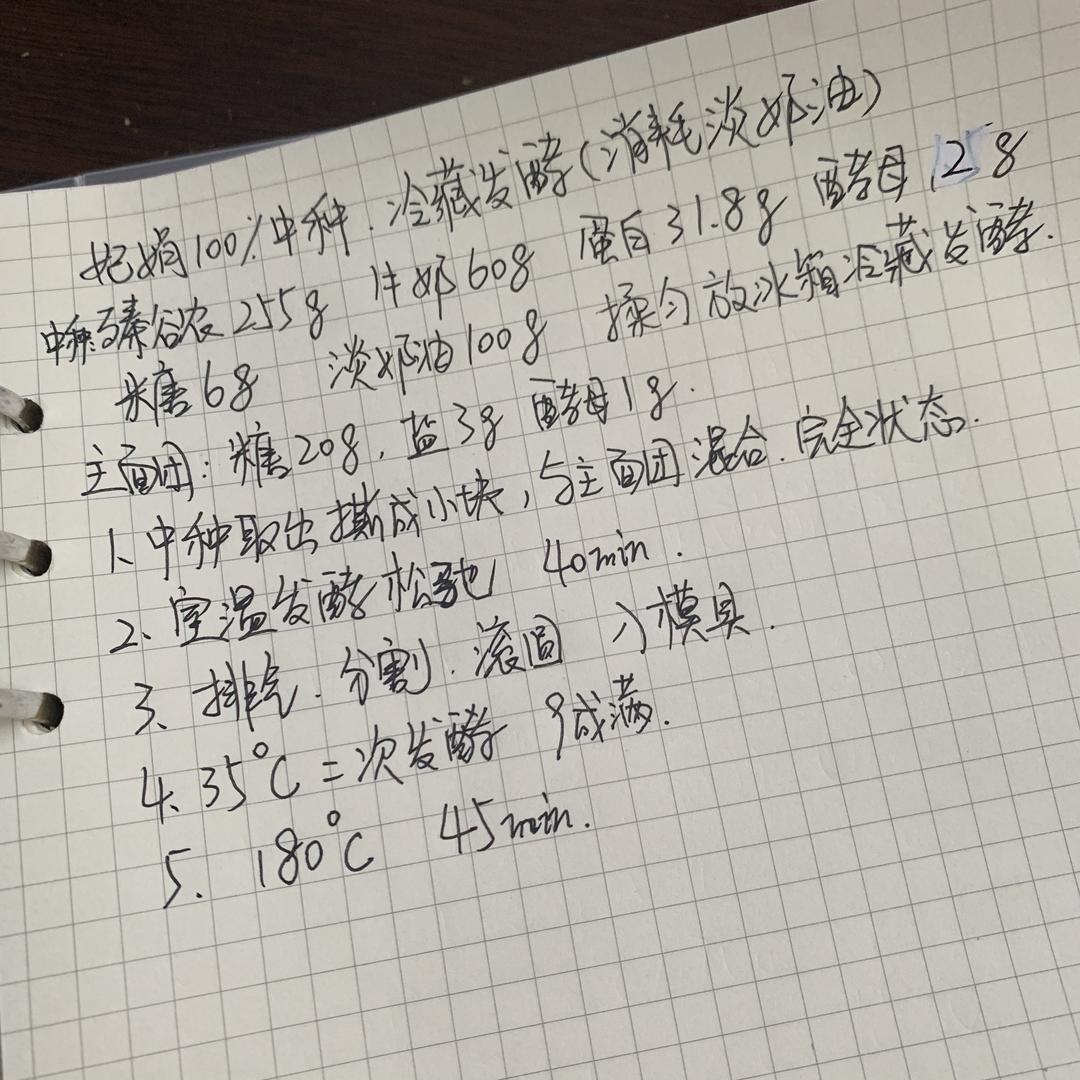 妃娟100%中种.冷藏发酵(消耗淡奶油)
中种:臻谷农255g 牛奶60g 蛋白31.8g 酵母1.2g
糖6g 淡奶油100g 揉匀放冰箱冷藏发酵.
主面团:糖20g,盐3g 酵母1g.
1、中种取出撕成小块,与主面团混合.完全状态.
2、室温发酵松弛 40min.
3、排气.分割.滚圆 入模具.
4、35℃二次发酵 9成满.
5、180℃ 45min.